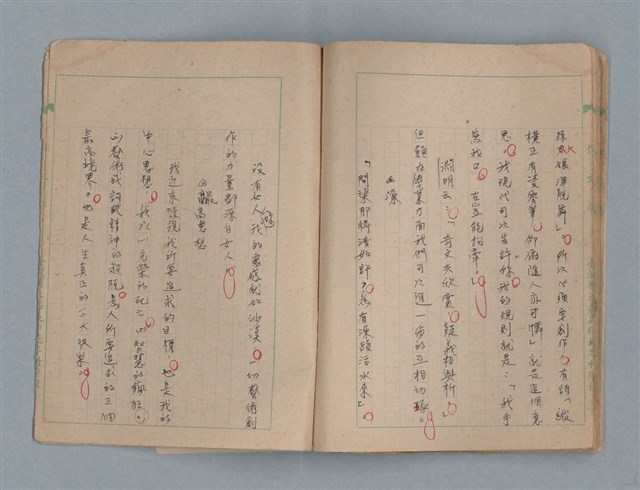 孫大娘渾脫舞」，所以必須要創作，有詩「縱
橫正有凌雲筆，俯仰隨人亦可憐」就是這個意
思。我現代可以告訴妳我的規則就是：「我手
寫我口，古豈能拘牽」。
淵明云：「奇文共欣賞，疑義相與析」
但願在學業方面我們可以進一步的互相切琢。
必深
「問渠那得清如許？為有源頭活水來」。
沒有女人，我的靈感就如沙漠，一切藝術創
作的力量都源自女人。
最高思想
我近來發現我所要追求的目標，也是我的
中心思想。我以一光榮的死之(四)智慧的
(三)藝術或詩歌精神的超脫為人所要追求的三個
最高境界。也是人生真正的三大快樂。